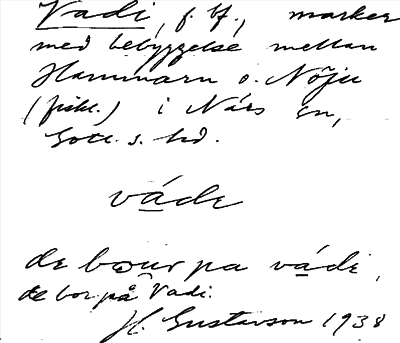 Vadi, f. bf., marker
med bebyggelse mellan
Hammarn o. Nöju
(fiskl.) i Närs sn,
Gotl. s. hd.
váde
de bour pa váde,
de bor på Vadi.
H. Gustavson 1938